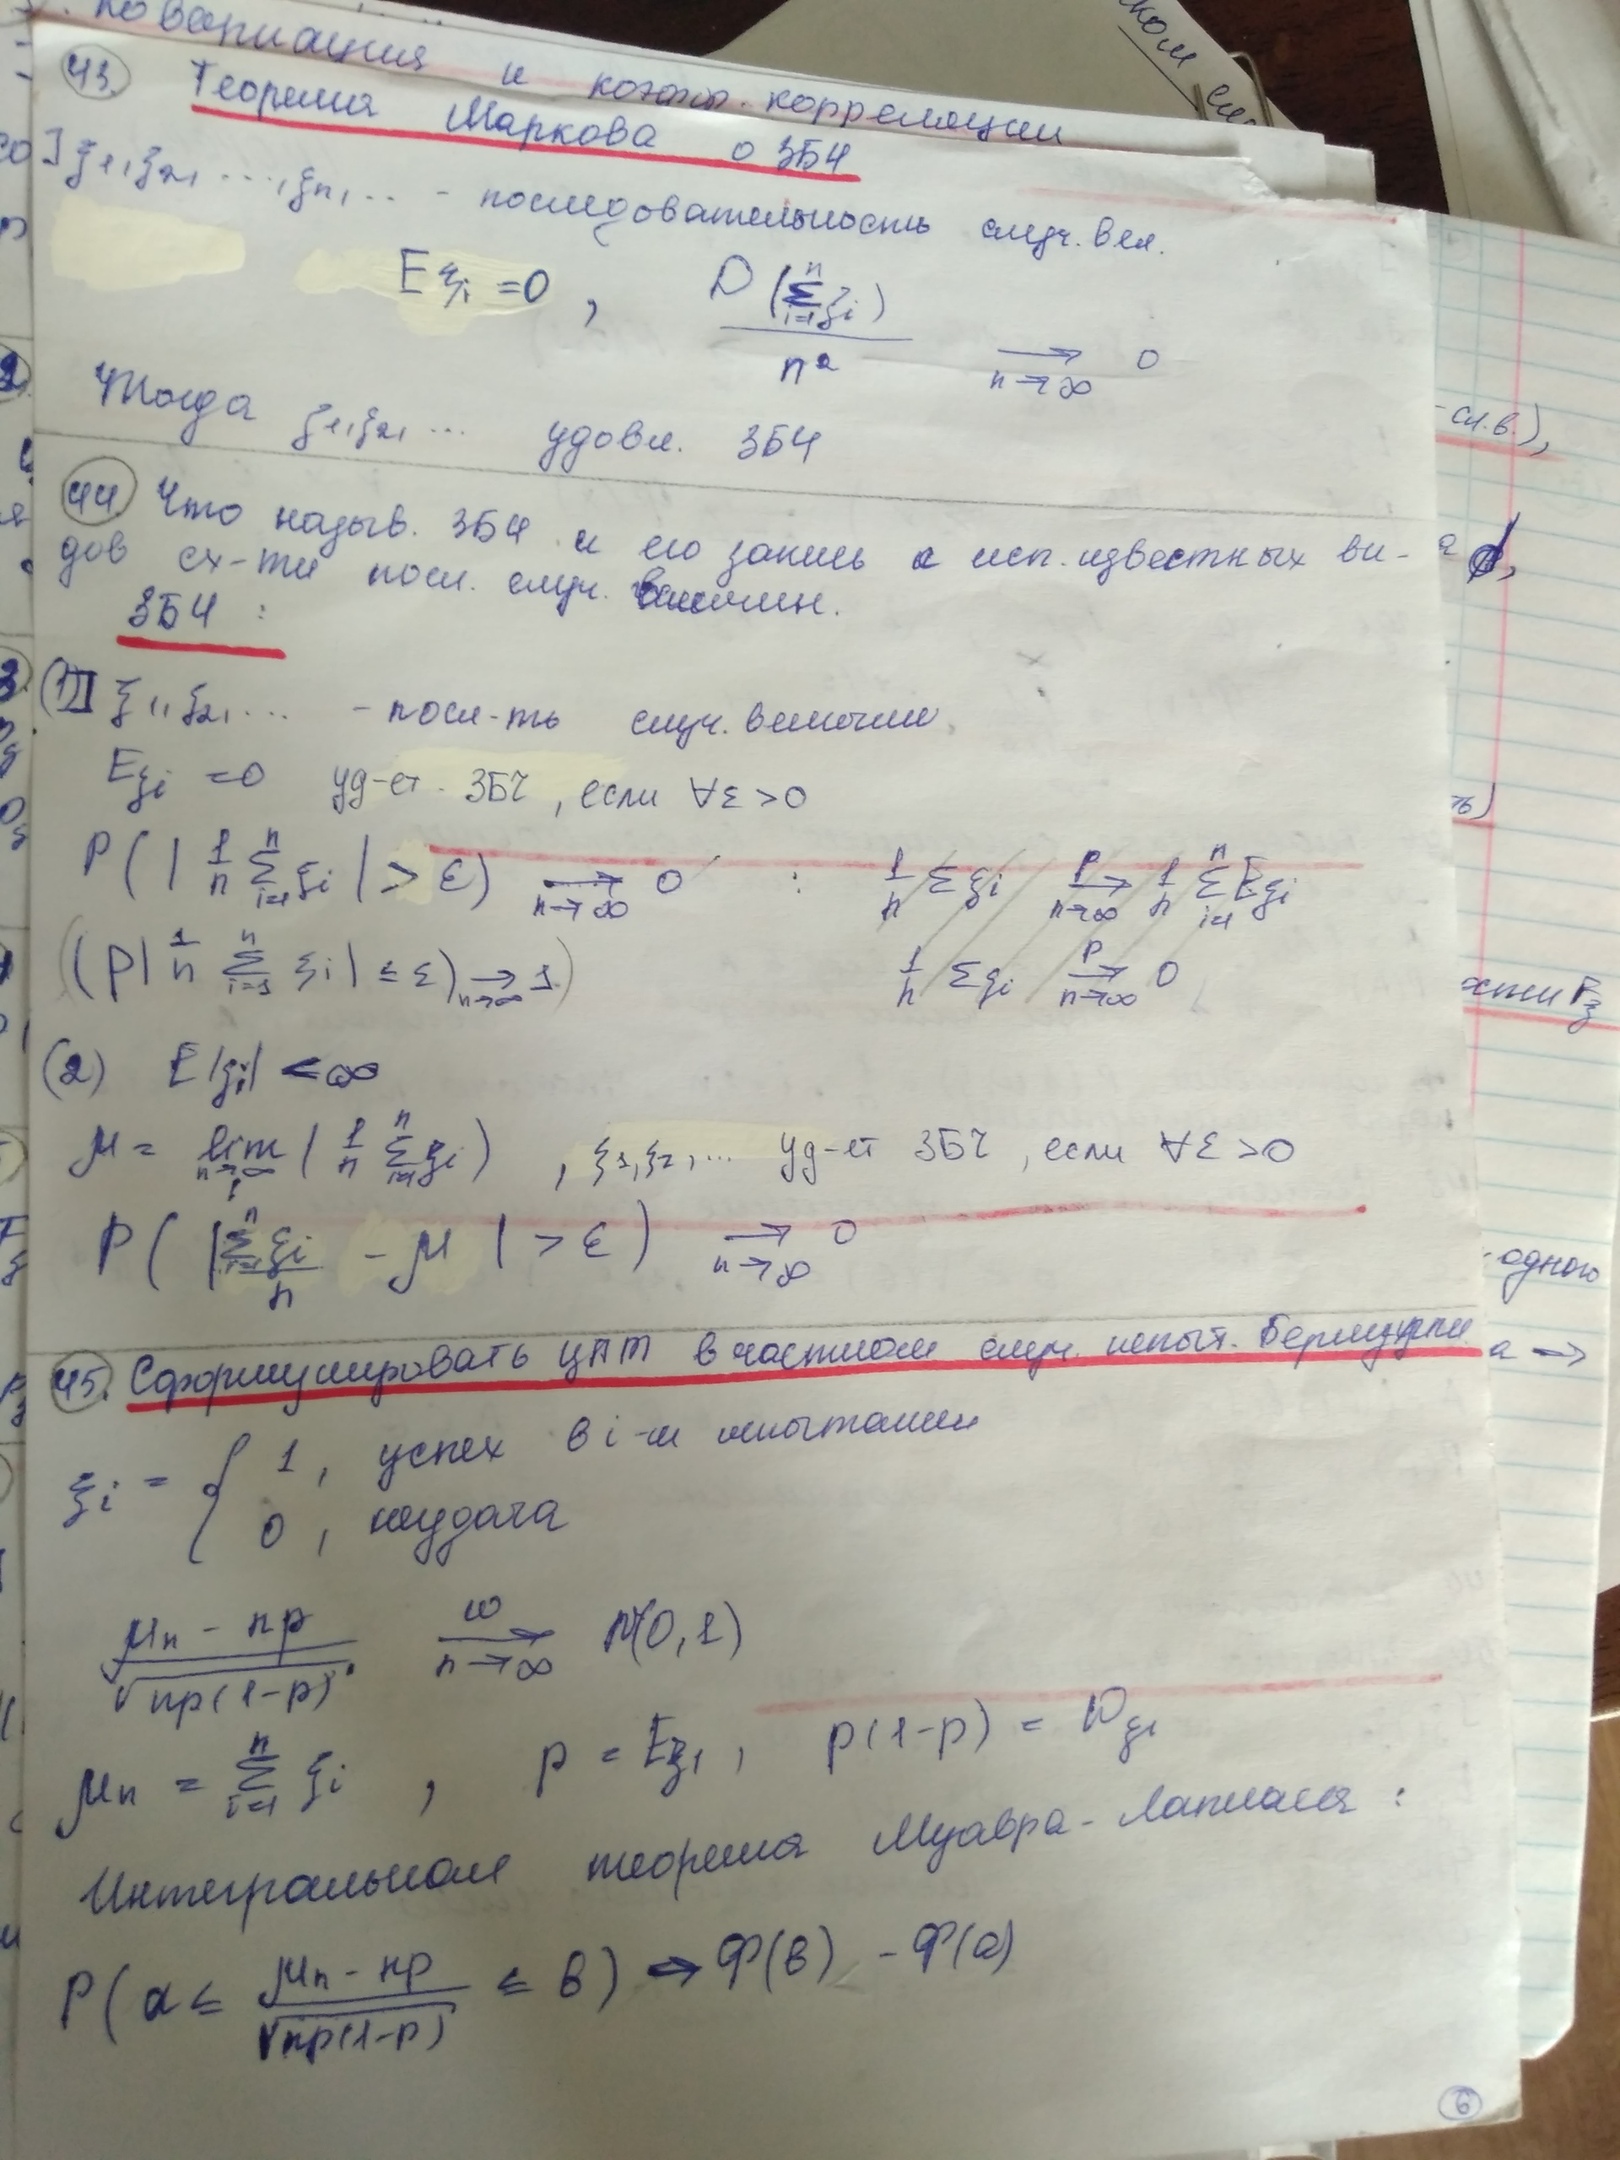 ковариация и коэфф. корреляции
43. Теорема Маркова о ЗБЧ
] ξ₁, ξ₂, ..., ξₙ, ... - последовательность случ. вел.
Eξᵢ = 0 , D(∑ᵢ₌₁ⁿ ξᵢ) / n² →(n→∞) 0
Тогда ξ₁, ξ₂, ... удовл. ЗБЧ
44. Что назыв. ЗБЧ и его запись с исп. известных ви-
дов сх-ти посл. случ. величин.
ЗБЧ :
(1) ] ξ₁, ξ₂, ... - посл-ть случ. величин,
Eξᵢ = 0 уд-ет ЗБЧ, если ∀ε > 0
P( | 1/n ∑ᵢ₌₁ⁿ ξᵢ | > ε) →(n→∞) 0 : 1/n ∑ ξᵢ →ᴾ(n→∞) 1/n ∑ᵢ₌₁ⁿ Eξᵢ
(P| 1/n ∑ᵢ₌₁ⁿ ξᵢ | ≤ ε) →(n→∞) 1) 1/n ∑ ξᵢ →ᴾ(n→∞) 0
(2) E|ξᵢ| < ∞
μ = lim(n→∞) ( 1/n ∑ᵢ₌₁ⁿ ξᵢ ) , ξ₁, ξ₂, ... уд-ет ЗБЧ, если ∀ε > 0
P( | ∑ᵢ₌₁ⁿ ξᵢ / n - μ | > ε ) →(n→∞) 0
45. Сформулировать ЦПТ в частном случ. испыт. Бернулли
ξᵢ = { 1, успех в i-м испытании
0, неудача
(μₙ - np) / √np(1-p) →ʷ(n→∞) N(0,1)
μₙ = ∑ᵢ₌₁ⁿ ξᵢ , p = Eξ₁, p(1-p) = Dξ₁
Интегральном теорема Муавра-Лапласа :
P( a ≤ (μₙ - np) / √np(1-p) ≤ в ) → Ф(в) - Ф(а)
6
-сл.в.),
одного
а →